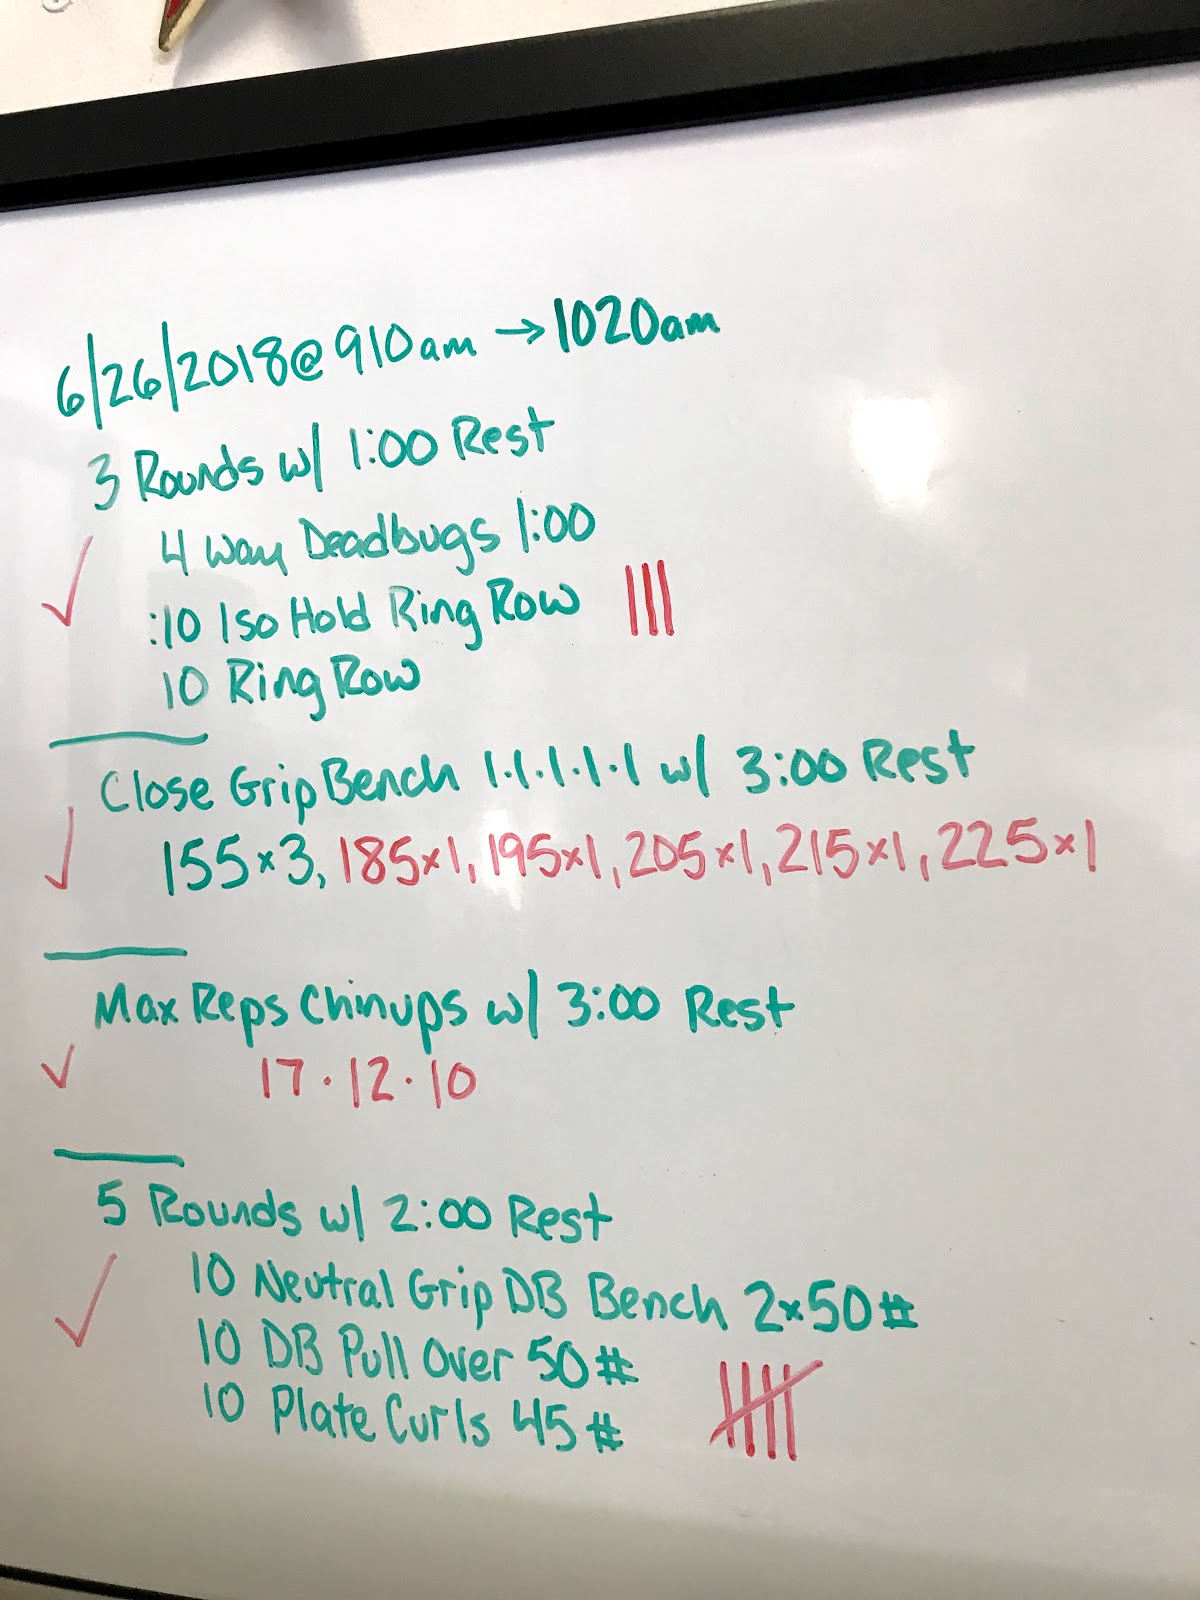 6/26/2018@910am →1020am
3 Rounds w/ 1:00 Rest
4 way Deadbugs 1:00
:10 Iso Hold Ring Row
10 Ring Row
Close Grip Bench 1·1·1·1·1 w/ 3:00 Rest
155×3, 185×1, 195×1, 205×1, 215×1, 225×1
Max Reps Chinups w/ 3:00 Rest
17·12·10
5 Rounds w/ 2:00 Rest
10 Neutral Grip DB Bench 2×50#
10 DB Pull Over 50#
10 Plate Curls 45#